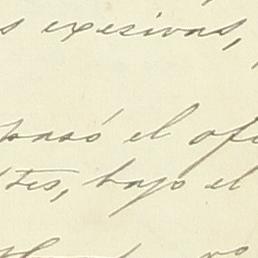 s exesivas,
pasó el ofi
tes, bajo el